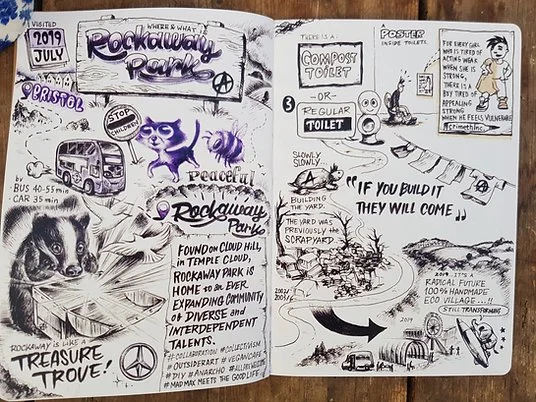 I VISITED
2019
JULY
WHERE & WHAT IS
Rockaway
Park
A
BRISTOL
STOP
CHILDREN
Peaceful
by
BUS 40-55 min
CAR 35 min
Rockaway
Park
FOUND ON CLOUD HILL,
in TEMPLE CLOUD,
ROCKAWAY PARK IS
HOME to an EVER
EXPANDING COMMUNITY
of DIVERSE and
INTERDEPENDENT
TALENTS.
#COLLABORATION #COLLECTIVISM
#OUTSIDERART #VEGANCAFE
#DIY #ANARCHO #ALLAREWELCOME
#MAD MAX MEETS THE GOOD LIFE
ROCKAWAY IS LIKE A
TREASURE
TROVE!
THERE IS A:
COMPOST
TOILET
-OR-
REGULAR
TOILET
A
POSTER
INSIDE TOILETS.
FOR EVERY GIRL
WHO IS TIRED OF
ACTING WEAK
WHEN SHE IS
STRONG,
THERE IS A
BOY TIRED OF
APPEARING
STRONG
WHEN HE FEELS VULNERABLE
#CrimethInc.
SLOWLY
SLOWLY
A
BUILDING
THE YARD.
THE YARD WAS
PREVIOUSLY the
SCRAPYARD.
"IF YOU BUILD IT
THEY WILL COME"
A
2019 IT'S A
RADICAL FUTURE
100% HANDMADE
ECO VILLAGE...!!
STILL TRANSFORMING
2019